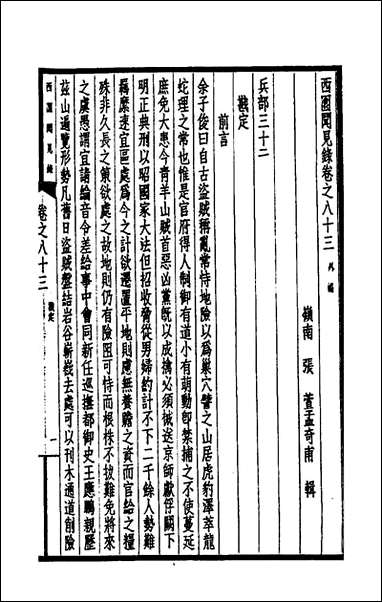 西園聞見錄卷之八十三 外編
嶺南 張 萱孟奇甫 輯
兵部三十二
戡定
前言
余子俊曰自古盜賊稱亂常恃地險以爲巢穴譬之山居虎豹澤萃龍
蛇理之常也惟是官府得人制御有道小有萌動卽禁捕之不使蔓延
庶免大患今青羊山賊首惡凶黨旣以成擒必須械送京師獻俘闕下
明正典刑以昭國家大法但招收脅從男婦約計不下二千餘人勢難
羈縻速宜區處爲今之計欲遷置平地則慮無養贍之資而官給之糧
殊非久長之策欲處之故地則仍有險阻可恃而根株不拔難免將來
之虞愚謂宜請綸音令差給事中會同新任巡撫都御史王應鵬親歷
茲山遍覽形勢凡舊日盜賊盤詰岩谷嶄嶻去處可以刊木通道削險
西園聞見錄
卷之八十三 戡定
一